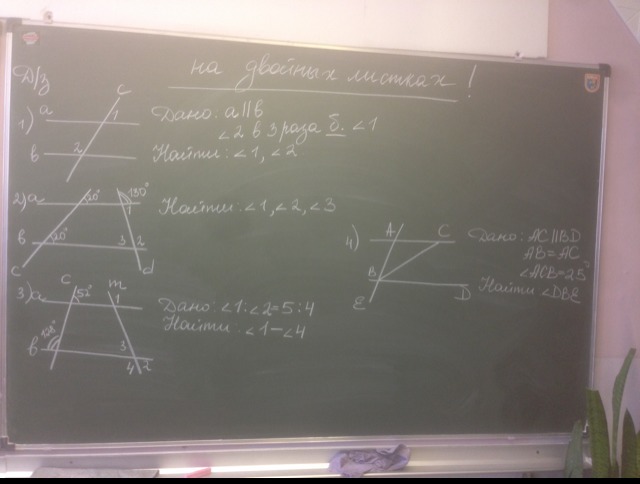 Д/з
на двойных листках!
1) a
c
1
b
2
Дано: a∥b
∠2 в 3 раза б. ∠1
Найти: ∠1, ∠2
2) a
1
b
3 2
c
d
Найти: ∠1, ∠2, ∠3
3) a
c
52°
m
1
b
128°
3
4 2
Дано: ∠1:∠2=5:4
Найти: ∠1–∠4
4)
A
C
B
E
D
Дано: AC∥BD
AB=AC
∠ACB=25°
Найти: ∠DBE